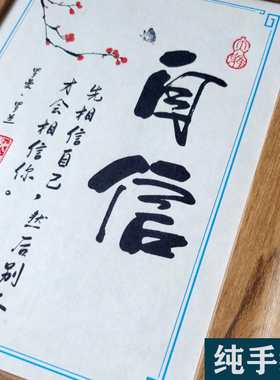 自信
先相信自己，然后别人
才会相信你。
罗曼·罗兰
纯手